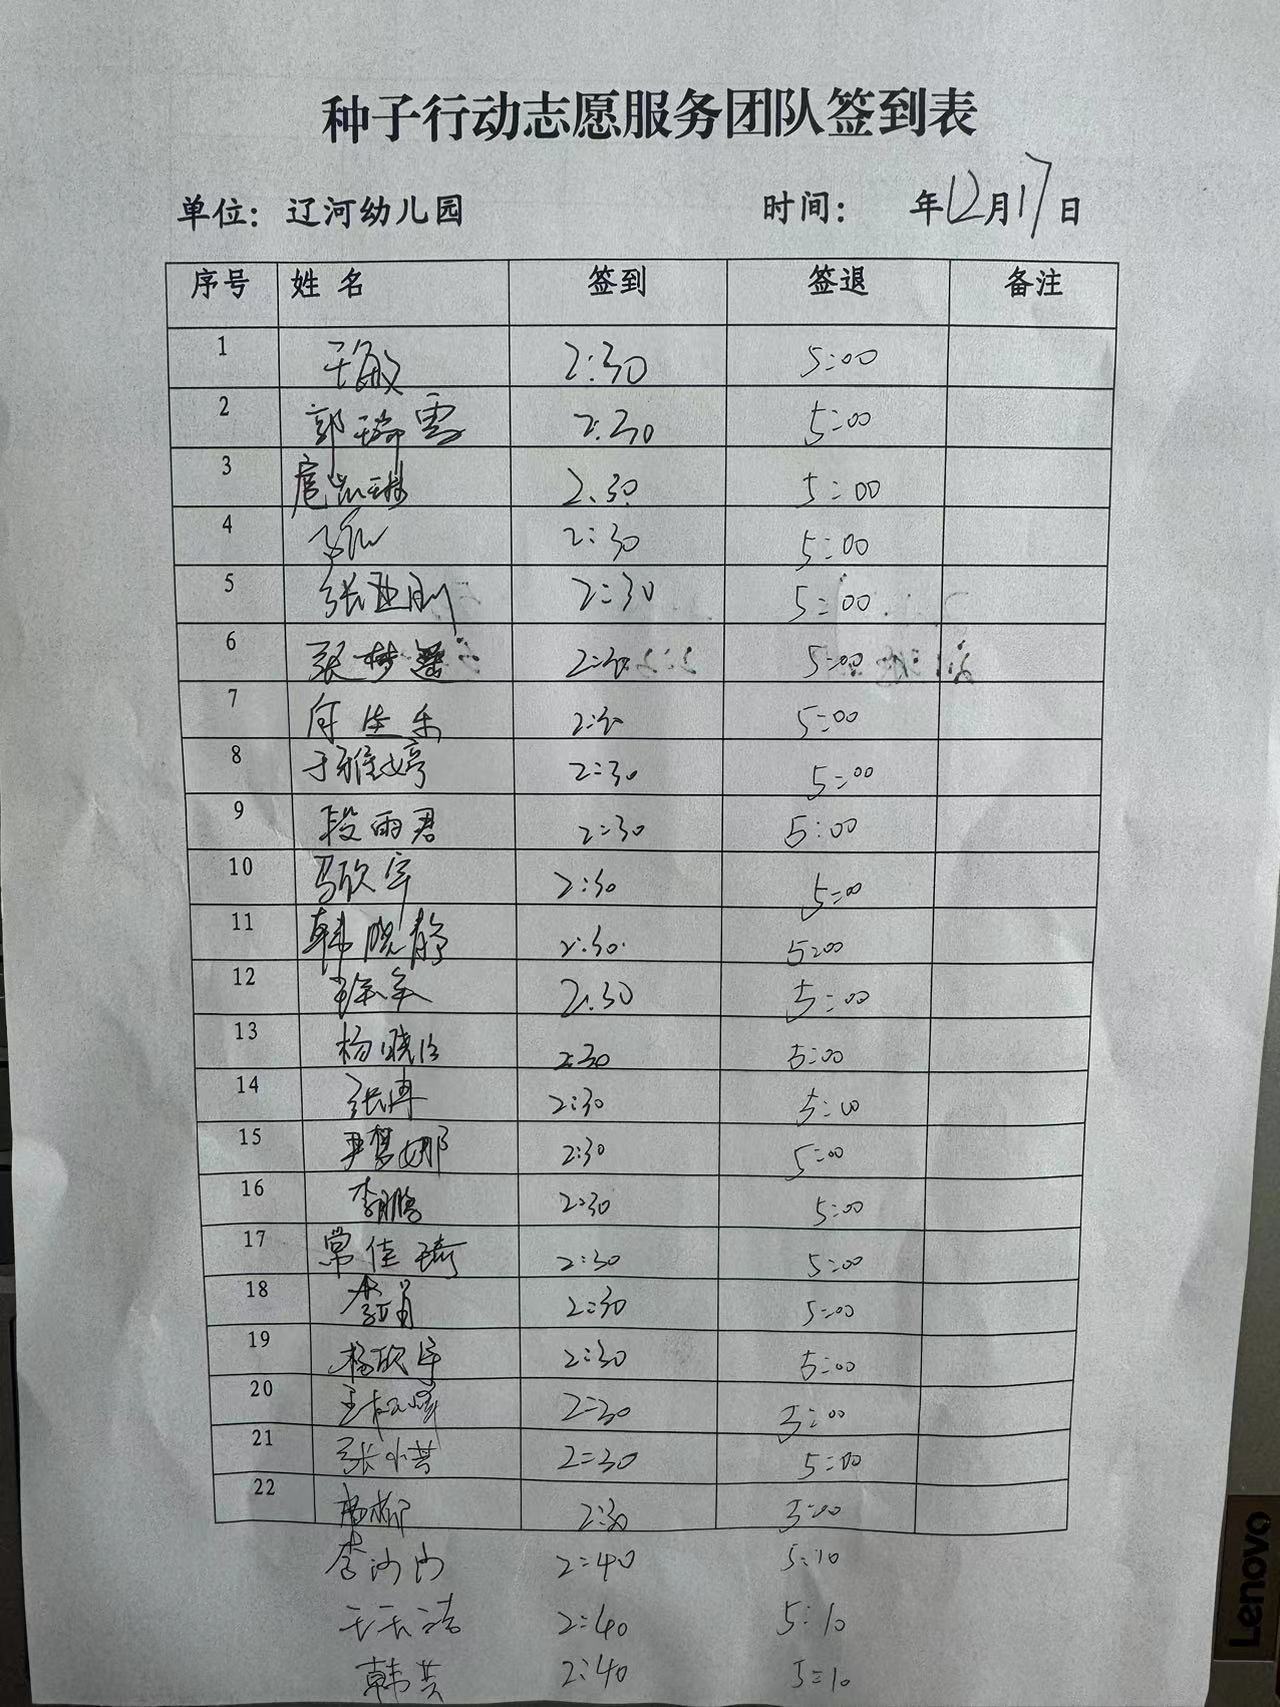 种子行动志愿服务团队签到表
单位：辽河幼儿园 时间： 年12月17日
序号 姓名 签到 签退 备注
1 王敏 2:30 5:00
2 郭瑞雪 2:30 5:00
3 2:30 5:00
4 2:30 5:00
5 张亚刚 2:30 5:00
6 张梦瑶 2:30 5:00
7 2:30 5:00
8 于雅婷 2:30 5:00
9 段雨君 2:30 5:00
10 马欣宇 2:30 5:00
11 韩晓静 2:30 5:00
12 2:30 5:00
13 杨晓 2:30 5:00
14 张 2:30 5:00
15 尹梦娜 2:30 5:00
16 李鹏 2:30 5:00
17 常佳琦 2:30 5:00
18 2:30 5:00
19 杨欣宇 2:30 5:00
20 王 2:30 5:00
21 张小芸 2:30 5:00
22 杨柳 2:30 5:00
李沙沙 2:40 5:10
2:40 5:10
韩芸 2:40 5:10
Lenovo